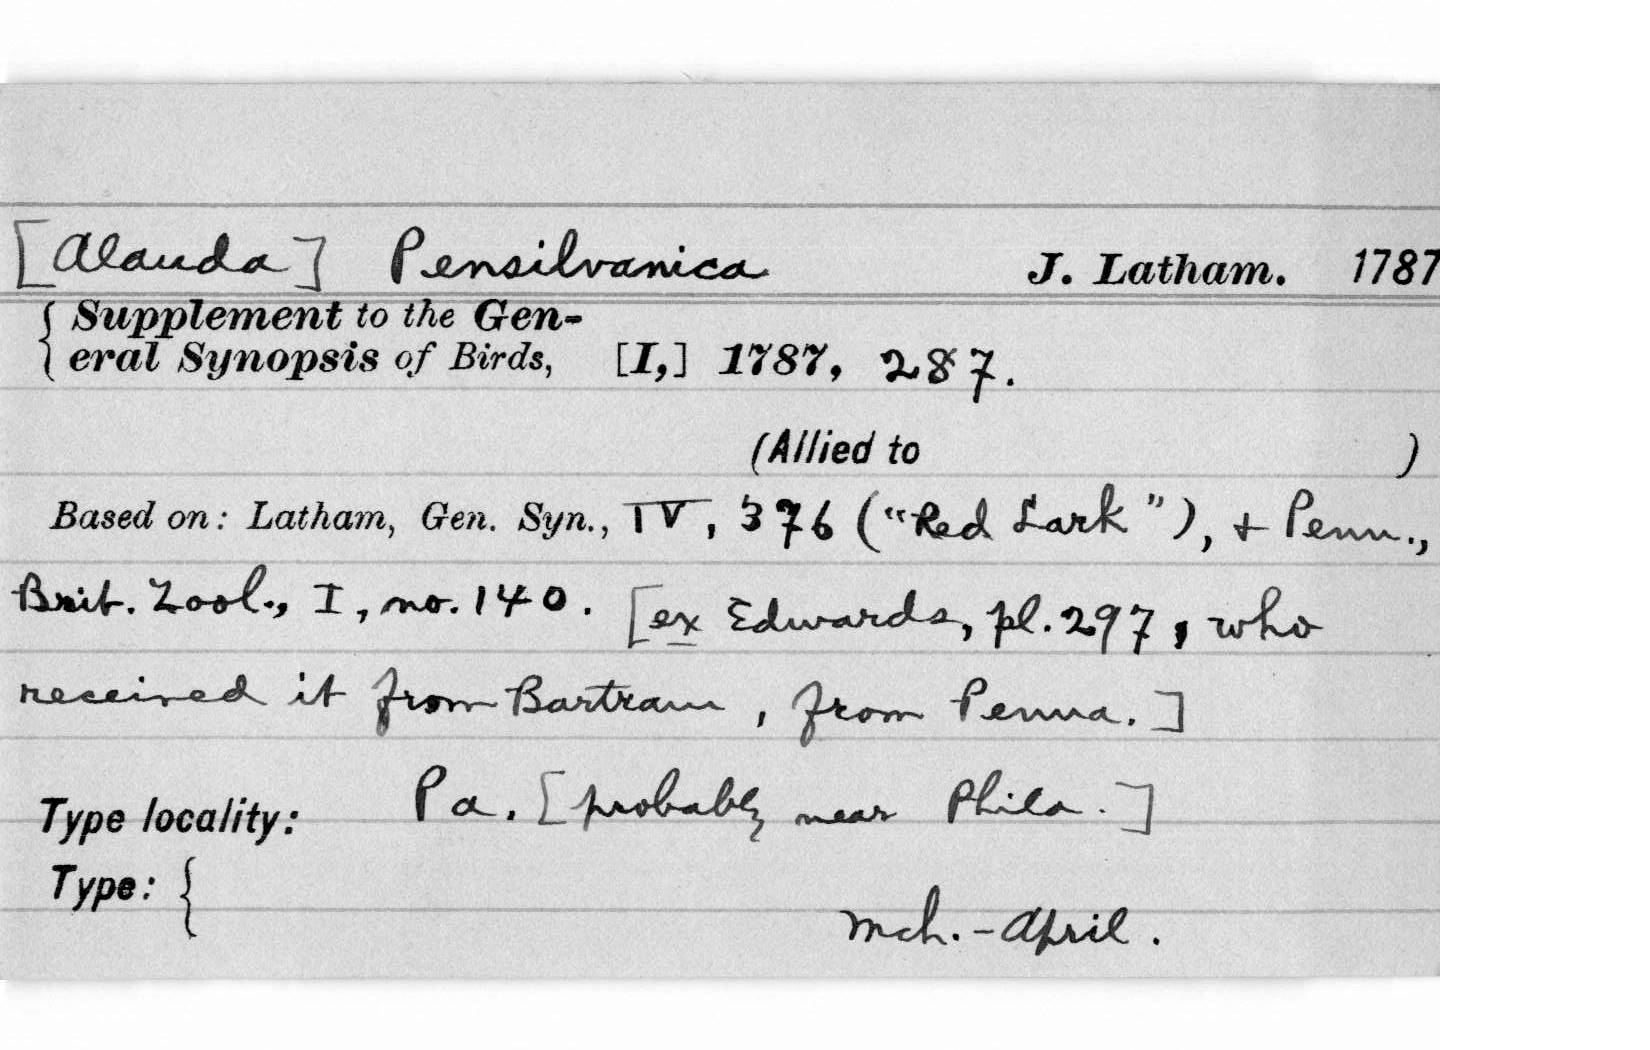 [Alauda] Pensilvanica J. Latham. 1787
{ Supplement to the Gen-
eral Synopsis of Birds, [I,] 1787, 287.
(Allied to )
Based on: Latham, Gen. Syn., IV, 376 ("Red Lark"), + Penn.,
Brit. Zool., I, no. 140. [ex Edwards, pl. 297, who
received it from Bartram, from Penna.]
Type locality: Pa. [probably near Phila.]
Type: {
Mch. - April.